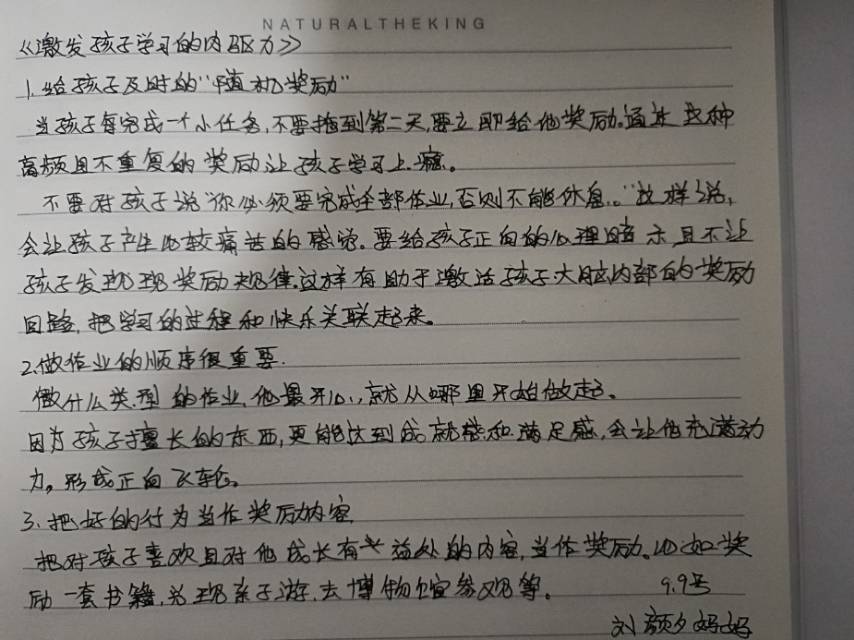 NATURALTHEKING
《激发孩子学习的内驱力》
1.给孩子及时的"随机奖励"
当孩子每完成一个小任务,不要拖到第二天,要立即给他奖励.通过这种
高频且不重复的奖励让孩子学习上瘾。
不要对孩子说"你必须要完成全部作业,否则不能休息。"这样说,
会让孩子产生比较痛苦的感觉.要给孩子正向的心理暗示,且不让
孩子发现现奖励规律.这样有助于激活孩子大脑内部的奖励
回路,把学习的过程和快乐关联起来。
2.做作业的顺序很重要.
做什么类型的作业,他最开心,就从哪里开始做起。
因为孩子擅长的东西,更能达到成就感和满足感,会让他充满动
力,形成正向飞轮。
3.把好的行为当作奖励内容
把对孩子喜欢且对他成长有益处的内容,当作奖励.比如奖
励一套书籍,兑现亲子游,去博物馆参观等。
9.9号
刘颜夕妈妈